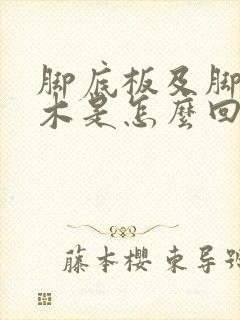 脚底板及脚
木是怎麼回
藤本櫻 束导